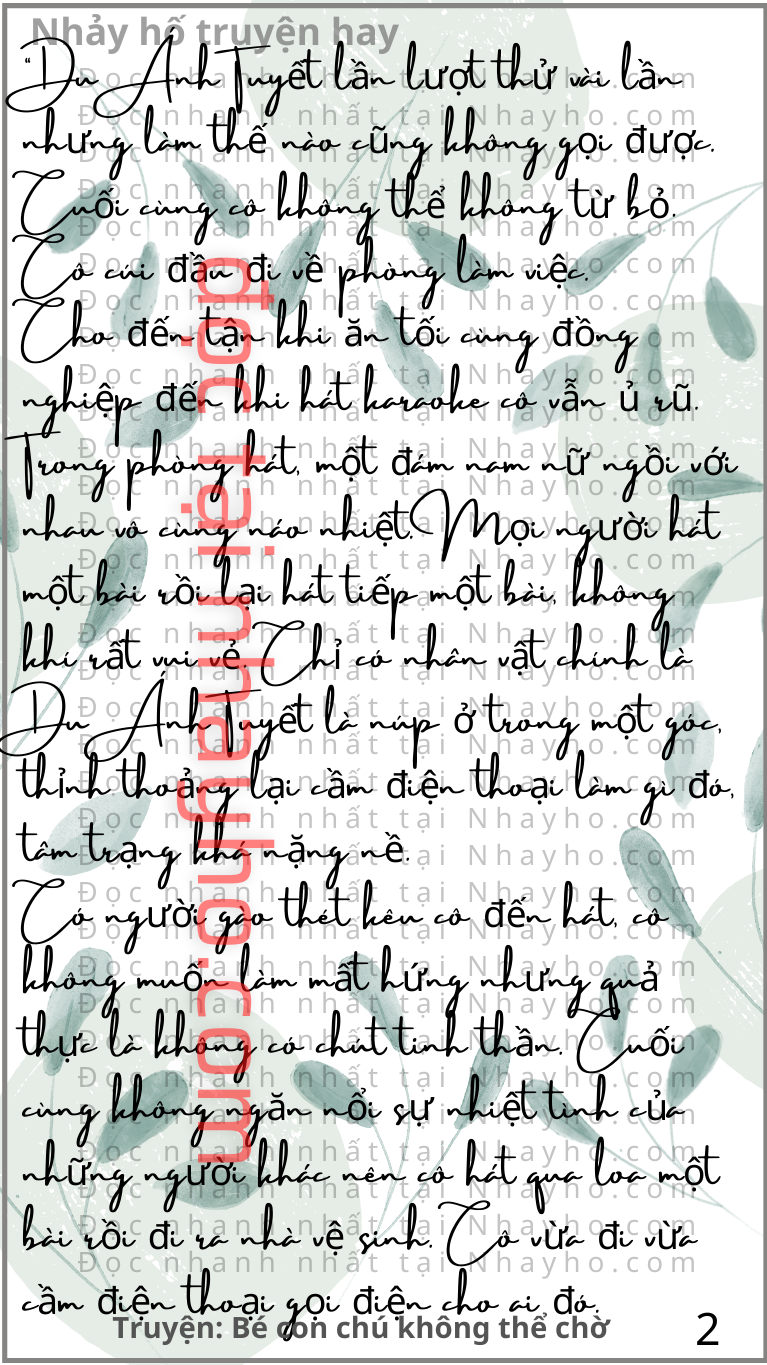 Nhảy hố truyện hay
“Du Ánh Tuyết lần lượt thử vài lần
nhưng làm thế nào cũng không gọi được.
Cuối cùng cô không thể không từ bỏ.
Cô cúi đầu đi về phòng làm việc.
Cho đến tận khi ăn tối cùng đồng
nghiệp đến khi hát karaoke cô vẫn ủ rũ.
Trong phòng hát, một đám nam nữ ngồi với
nhau vô cùng náo nhiệt. Mọi người hát
một bài rồi lại hát tiếp một bài, không
khí rất vui vẻ. Chỉ có nhân vật chính là
Du Ánh Tuyết là núp ở trong một góc,
thỉnh thoảng lại cầm điện thoại làm gì đó,
tâm trạng khá nặng nề.
Có người gào thét kêu cô đến hát, cô
không muốn làm mất hứng nhưng quả
thực là không có chút tinh thần. Cuối
cùng không ngăn nổi sự nhiệt tình của
những người khác nên cô hát qua loa một
bài rồi đi ra nhà vệ sinh. Cô vừa đi vừa
cầm điện thoại gọi điện cho ai đó.
Truyện: Bé con chú không thể chờ
2
đọc tại nhayho.com
Đọc nhanh nhất tại Nhayho.com